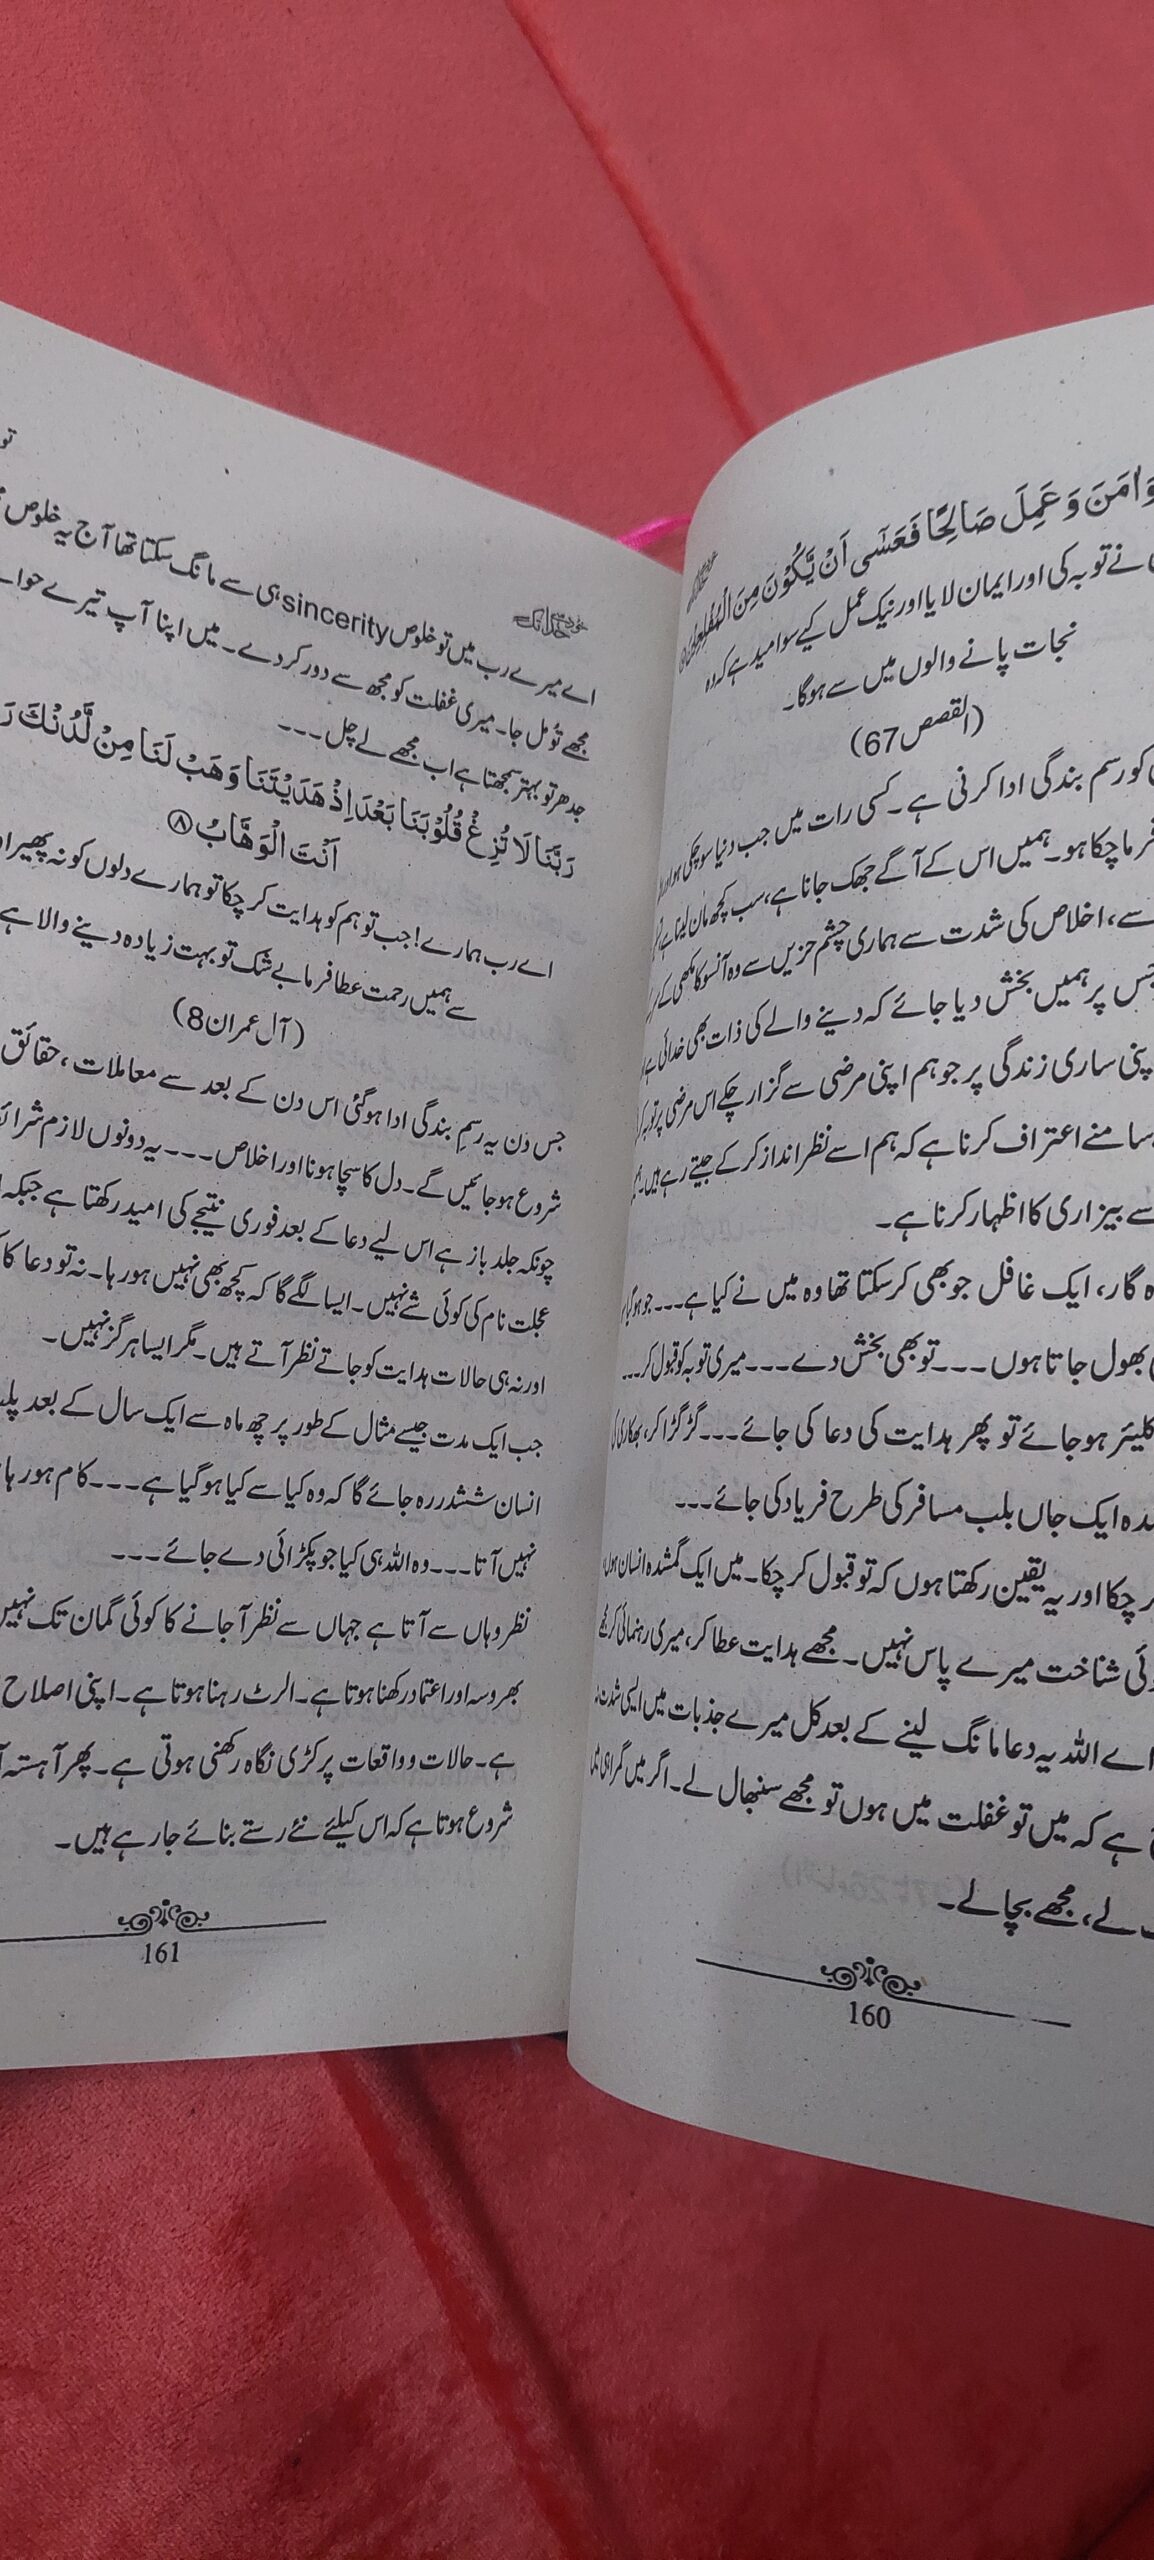 وَاٰمَنَ وَعَمِلَ صَالِحًا فَعَسٰٓى اَنْ يَّكُوْنَ مِنَ الْمُفْلِحِيْنَ
نے توبہ کی اور ایمان لایا اور نیک عمل کیے سو امید ہے کہ وہ
نجات پانے والوں میں سے ہوگا۔
(القصص 67)
کو رسم بندگی ادا کرنی ہے۔ کسی رات میں جب دنیا سو چکی ہو اور
فرما چکا ہو۔ ہمیں اس کے آگے جھک جانا ہے، سب کچھ مان لینا ہے
سے، اخلاص کی شدت سے ہماری چشم حزیں سے وہ آنسو کا مکھی کے
جس پر ہمیں بخش دیا جائے کہ دینے والے کی ذات بھی خدائی ہے
اپنی ساری زندگی پر جو ہم اپنی مرضی سے گزار چکے اس مرضی پر توبہ
سامنے اعتراف کرنا ہے کہ ہم اسے نظر انداز کر کے جیتے رہے ہیں۔
سے بیزاری کا اظہار کرنا ہے۔
گار، ایک غافل جو بھی کر سکتا تھا وہ میں نے کیا ہے۔۔۔ جو ہو گیا
بھول جاتا ہوں ۔۔۔ تو بھی بخش دے۔۔۔ میری توبہ کو قبول کر۔۔۔
کلیئر ہو جائے تو پھر ہدایت کی دعا کی جائے۔۔۔ گڑگڑا کر، بھکاری کی
ایک جاں بلب مسافر کی طرح فریاد کی جائے۔۔۔
کر چکا اور یہ یقین رکھتا ہوں کہ تو قبول کر چکا۔ میں ایک گمشدہ انسان ہوں
کوئی شناخت میرے پاس نہیں۔ مجھے ہدایت عطا کر، میری رہنمائی کر
اے اللہ یہ دعا مانگ لینے کے بعد کل میرے جذبات میں ایسی شدت
ہے کہ میں تو غفلت میں ہوں تو مجھے سنبھال لے۔ اگر میں گمراہی
لے، مجھے بچا لے۔
160
تو
اے میرے رب میں تو خلوص sincerity ہی سے مانگ سکتا تھا آج یہ خلوص
مجھے تو مل جا۔ میری غفلت کو مجھ سے دور کر دے۔ میں اپنا آپ تیرے حوالے
جدھر تو بہتر سمجھتا ہے اب مجھے لے چل ۔۔۔
رَبَّنَا لَا تُزِغْ قُلُوْبَنَا بَعْدَ اِذْ هَدَيْتَنَا وَهَبْ لَنَا مِنْ لَّدُنْكَ
اَنْتَ الْوَهَّابُ ۝۸
اے رب ہمارے! جب تو ہم کو ہدایت کر چکا تو ہمارے دلوں کو نہ پھیر اور
سے ہمیں رحمت عطا فرما بے شک تو بہت زیادہ دینے والا ہے
(آل عمران 8)
جس دن یہ رسمِ بندگی ادا ہو گئی اس دن کے بعد سے معاملات، حقائق
شروع ہو جائیں گے۔ دل کا سچا ہونا اور اخلاص ۔۔۔ یہ دونوں لازم شرائط
چونکہ جلد باز ہے اس لیے دعا کے بعد فوری نتیجے کی امید رکھتا ہے جبکہ
عجلت نام کی کوئی شے نہیں۔ ایسا لگے گا کہ کچھ بھی نہیں ہو رہا۔ نہ تو دعا کا
اور نہ ہی حالات ہدایت کو جاتے نظر آتے ہیں۔ مگر ایسا ہرگز نہیں۔
جب ایک مدت جیسے مثال کے طور پر چھ ماہ سے ایک سال کے بعد
انسان ششدر رہ جائے گا کہ وہ کیا سے کیا ہو گیا ہے۔۔۔ کام ہو رہا
نہیں آتا۔۔۔ وہ اللہ ہی کیا جو پکڑائی دے جائے۔۔۔
نظر وہاں سے آتا ہے جہاں سے نظر آ جانے کا کوئی گمان تک نہیں
بھروسہ اور اعتماد رکھنا ہوتا ہے۔ الرٹ رہنا ہوتا ہے۔ اپنی اصلاح
ہے۔ حالات و واقعات پر کڑی نگاہ رکھنی ہوتی ہے۔ پھر آہستہ
شروع ہوتا ہے کہ اس کیلئے نئے رستے بنائے جا رہے ہیں۔
161